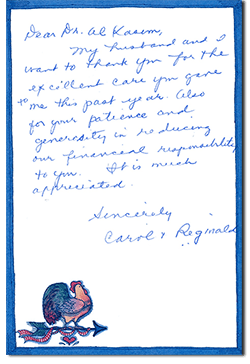 Dear Dr. Al Kasem,
My husband and I
want to thank you for the
excellent care you gave
to me this past year. Also
for your patience and
generosity in reducing
our financial responsibility
to you. It is much
appreciated.
Sincerely
Carol & Reginald